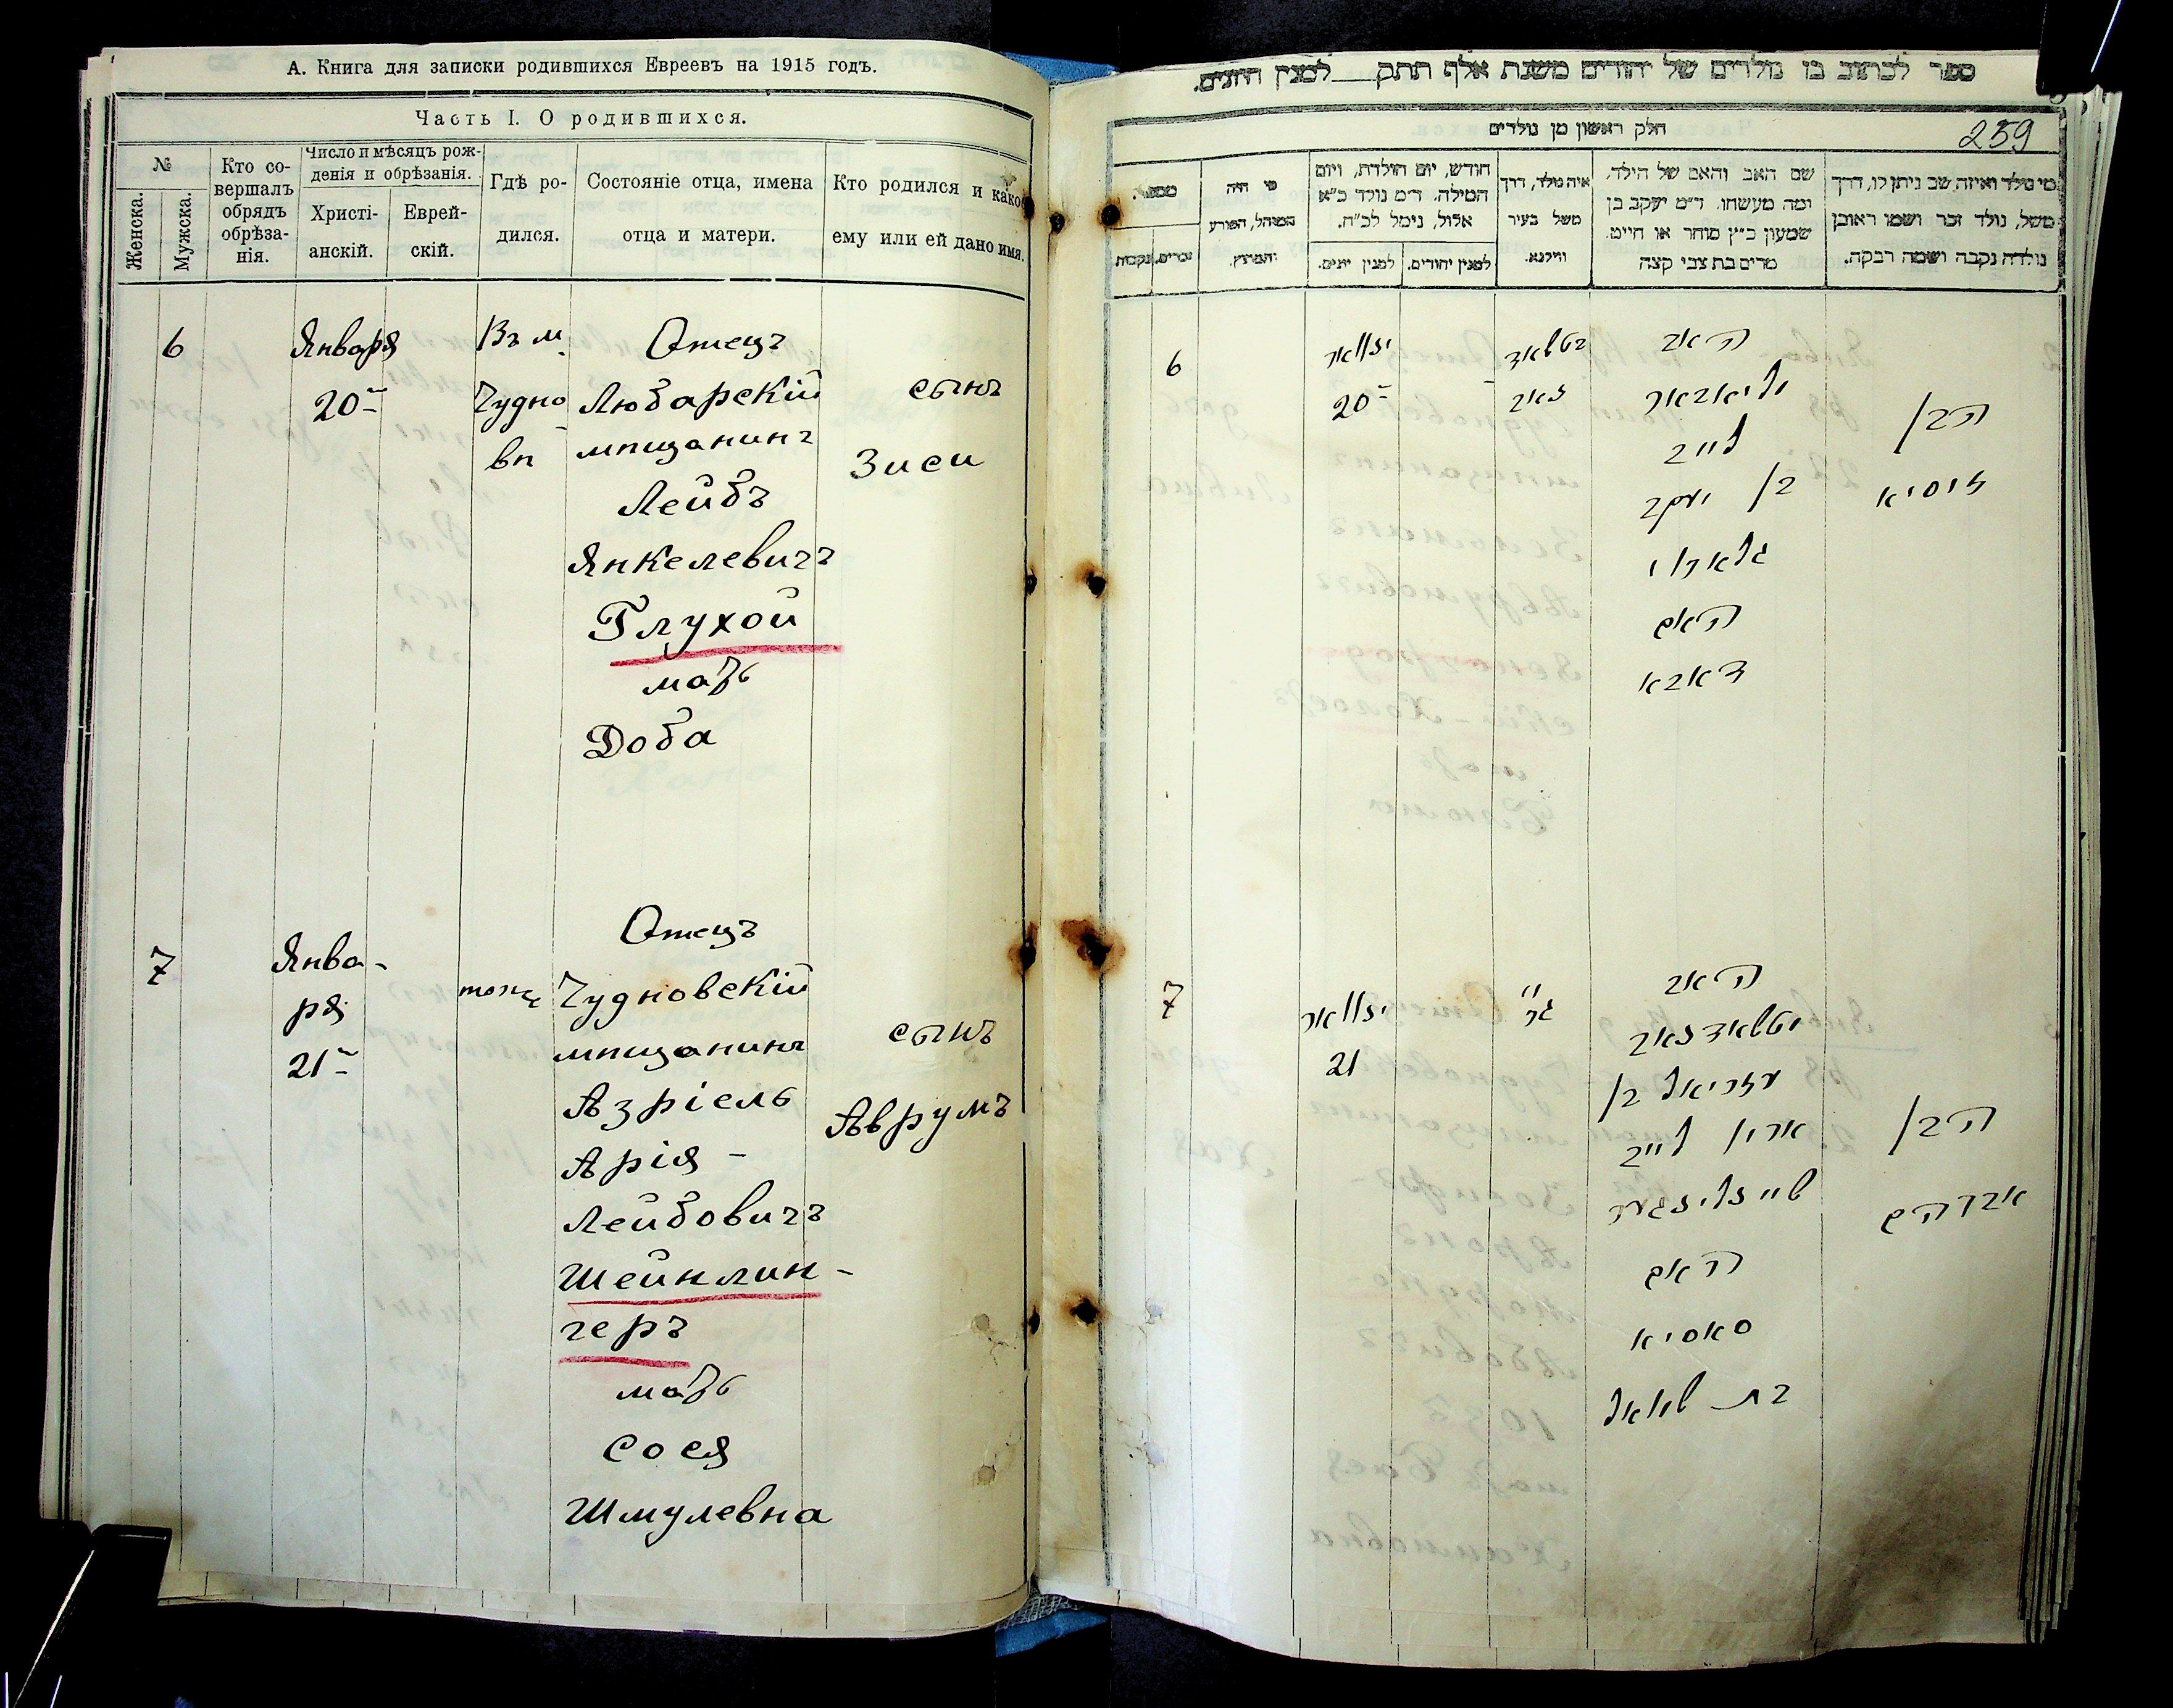 А. Книга для записки родившихся Евреевъ на 1915 годъ.
Часть I. О родившихся.
№
Женска.
Мужска.
Кто со-
вершалъ
обрядъ
обрѣза-
нія.
Число и мѣсяцъ рож-
денія и обрѣзанія.
Христі-
анскій.
Еврей-
скій.
Гдѣ ро-
дился.
Состояніе отца, имена
отца и матери.
Кто родился и какое
ему или ей дано имя.
6
Января
20
Въ м.
Чудно
вѣ
Отецъ
Любарскій
мѣщанинъ
Лейбъ
Янкелевичъ
Глухой
мать
Доба
сынъ
Зиси
7
Янва-
ря
21
тоже
Отецъ
Чудновскій
мѣщанинъ
Азріель
Арія -
Лейбовичъ
Шейнлин-
геръ
мать
Сося
Шмулевна
сынъ
Аврумъ
ספר לכתוב בו נולדים של יהודים משנת אלף תתק למנין היונים.
חלק ראשון מן נולדים
259
מי נולד ואיזה שם ניתן לו, דרך
משל, נולד זכר ושמו ראובן
נולדה נקבה ושמה רבקה.
שם האב והאם של הילד,
ומה מעשהו. ד״מ יעקב בן
שמעון כ״ץ סוחר או חייט.
מרים בת צבי קצה
איה נולד, דרך
משל בעיר
ווילנא.
חודש, יום הולדת, ויום
המילה. ד״מ נולד כ״א
אלול, נימל לכ״ח.
למנין יהודים.
למנין יונים.
מי היה
המוהל, הפורע
והמוצץ.
מספר.
זכרים.
נקבות
6
יאנואר
20
טשאד
נאוו
האב
ליובאר
לייב
בן יעקב
האם
דאבא
הבן
זיסיא
7
יאנואר
21
האב
טשאדנאוו
עזריאל בן
ארי׳ לייב
שיינלינגער
האם
סאסיא
בת שמואל
הבן
אברהם